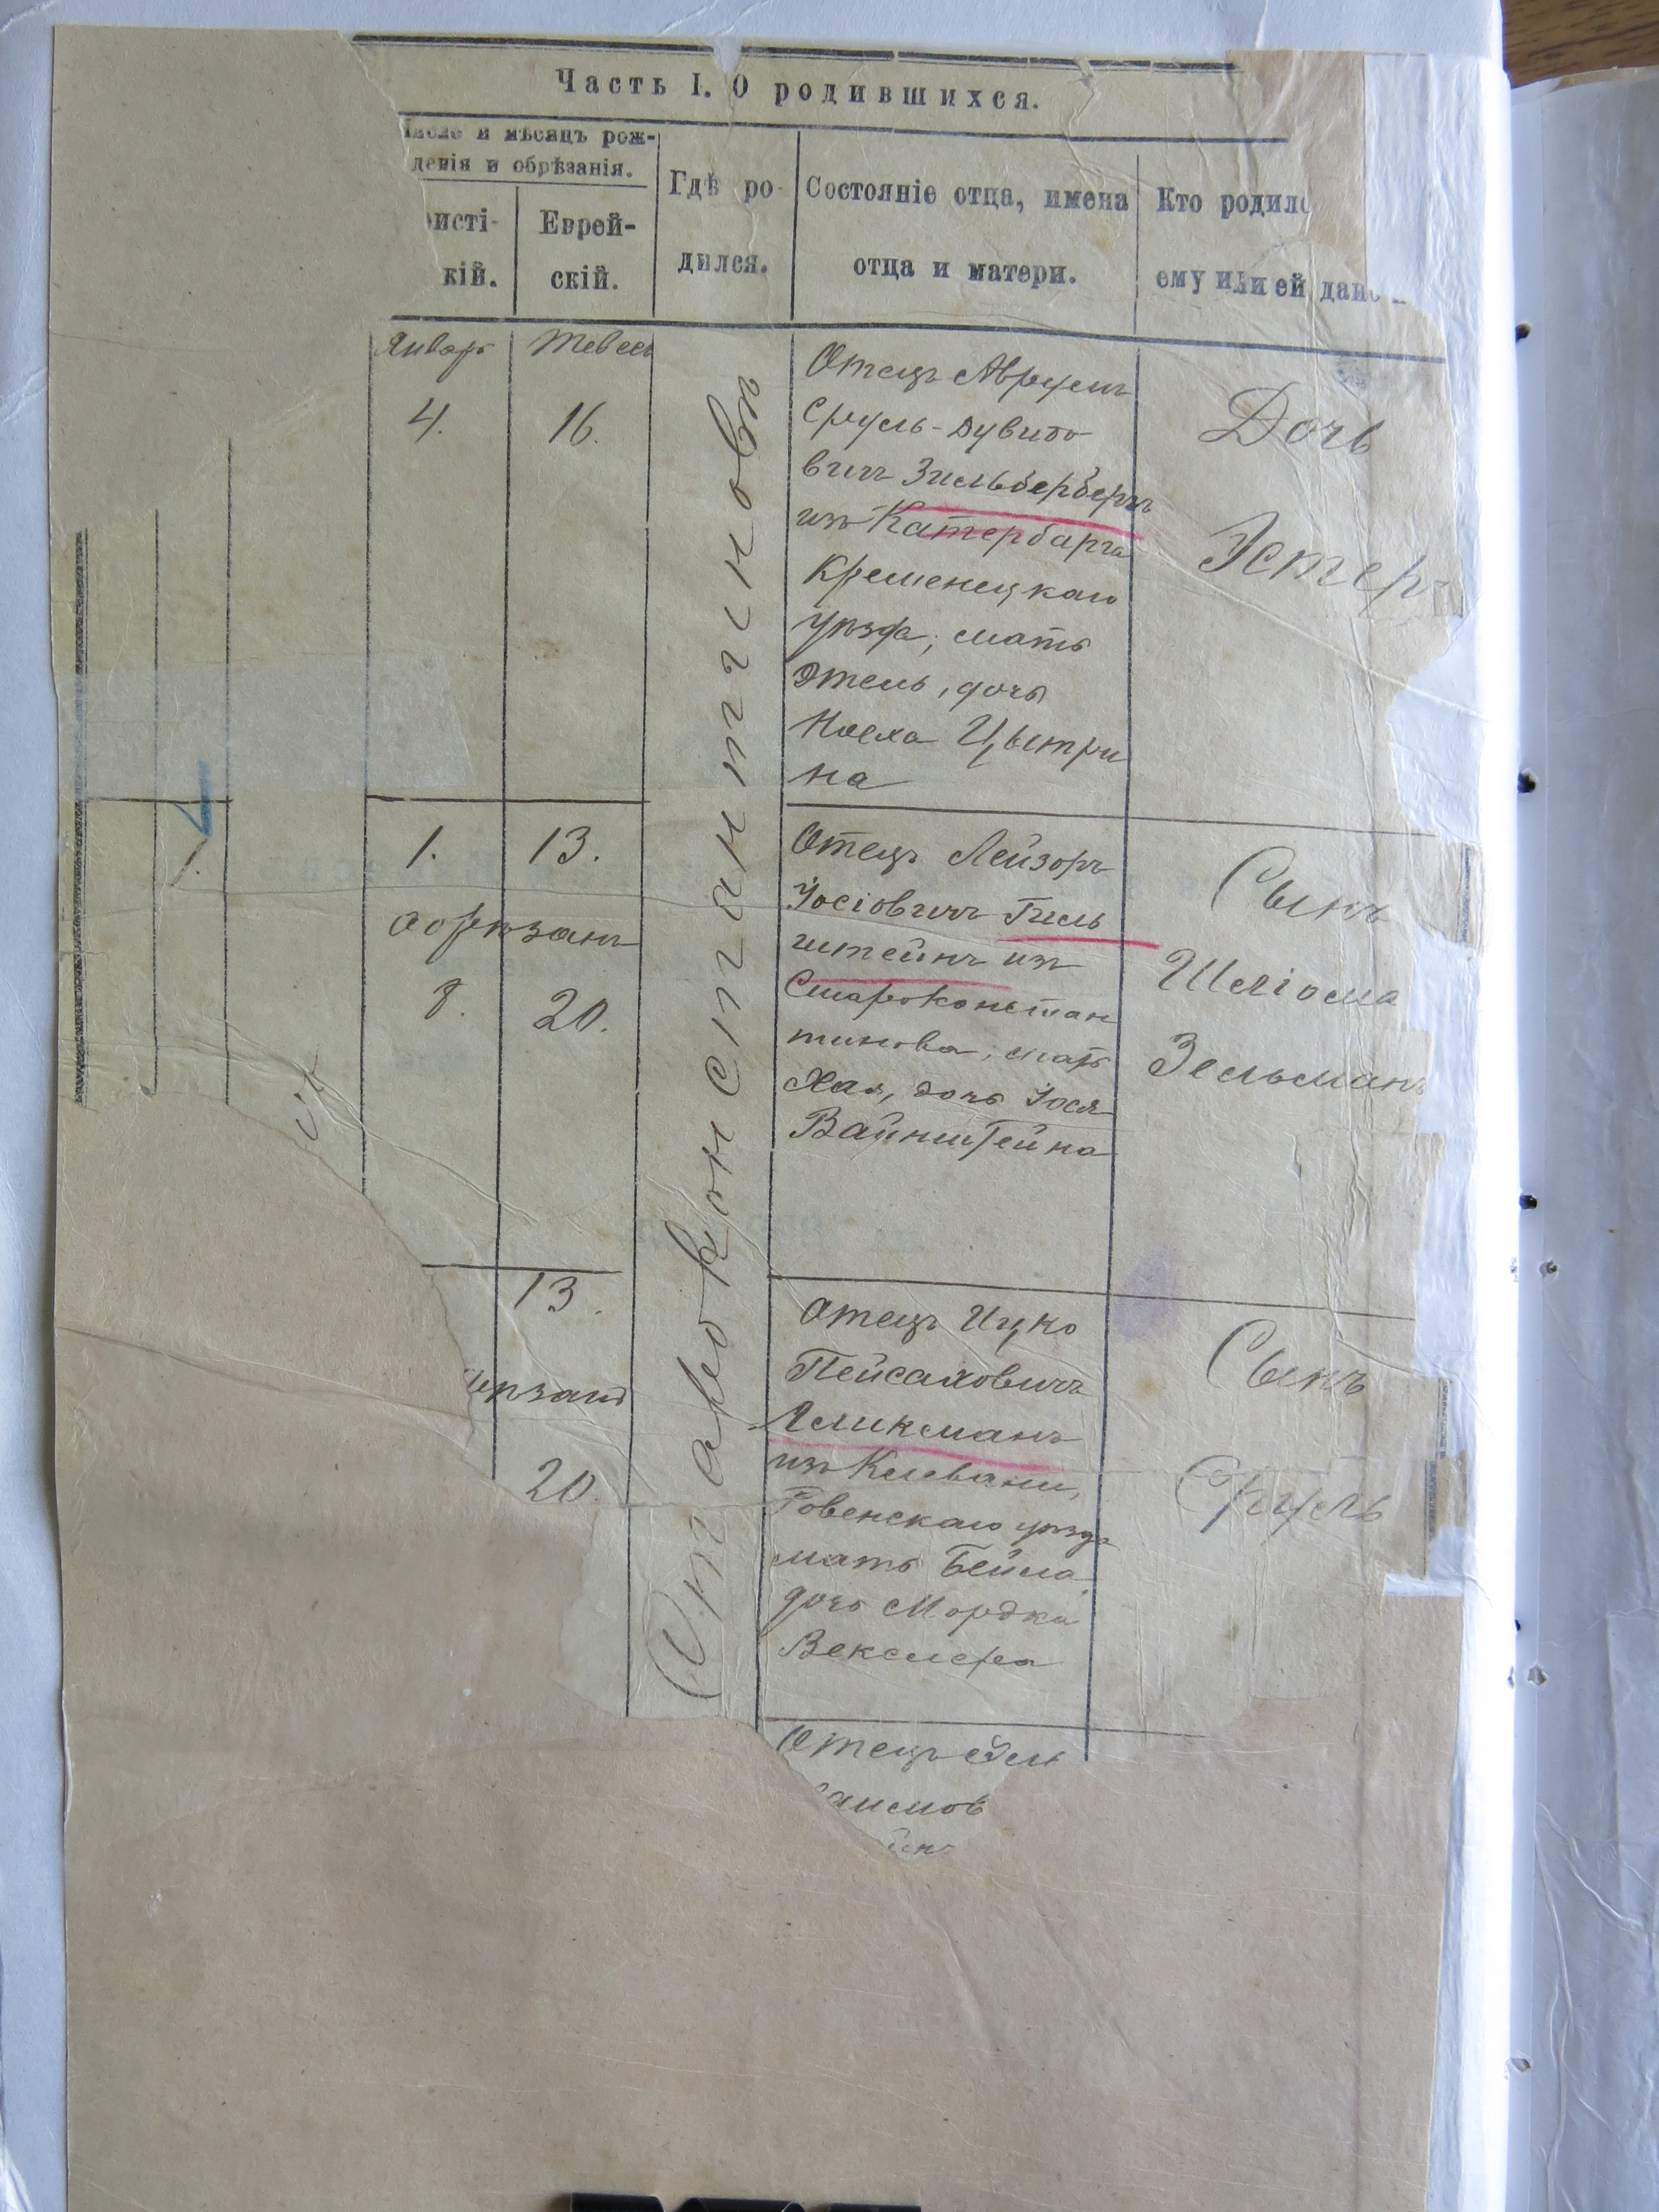 Часть I. О родившихся.
Число и мѣсяцъ рож-
денія и обрѣзанія.
исті-
кій.
Еврей-
скій.
Гдѣ ро-
дился.
Состояніе отца, имена
отца и матери.
Кто родилс
ему или ей дано
Январь
Тевесъ
4.
16.
Староконстантиновъ
Отецъ Аврумъ
Сруль-Дувидо
вичъ Зильбербергъ
изъ Катербарга
Кременецкаго
уѣзда, мать
Этель, дочь
Цытри
на
Дочь
Эстеръ
1.
1.
13.
обрѣзанъ
8.
20.
Отецъ Лейзоръ
Іосіовичъ Гиль
штейнъ изъ
Староконстан
тинова, мать
Хая, дочь Іося
Вайнштейна
Сынъ
Шліома
Зельманъ
13.
рѣзанъ
20.
Отецъ Ицко
Пейсаховичъ
Гликманъ
изъ Клевани,
Ровенскаго уѣзда
мать Бейла,
дочь Мордка
Векслера
Сынъ
Сруль
Отецъ
аимов